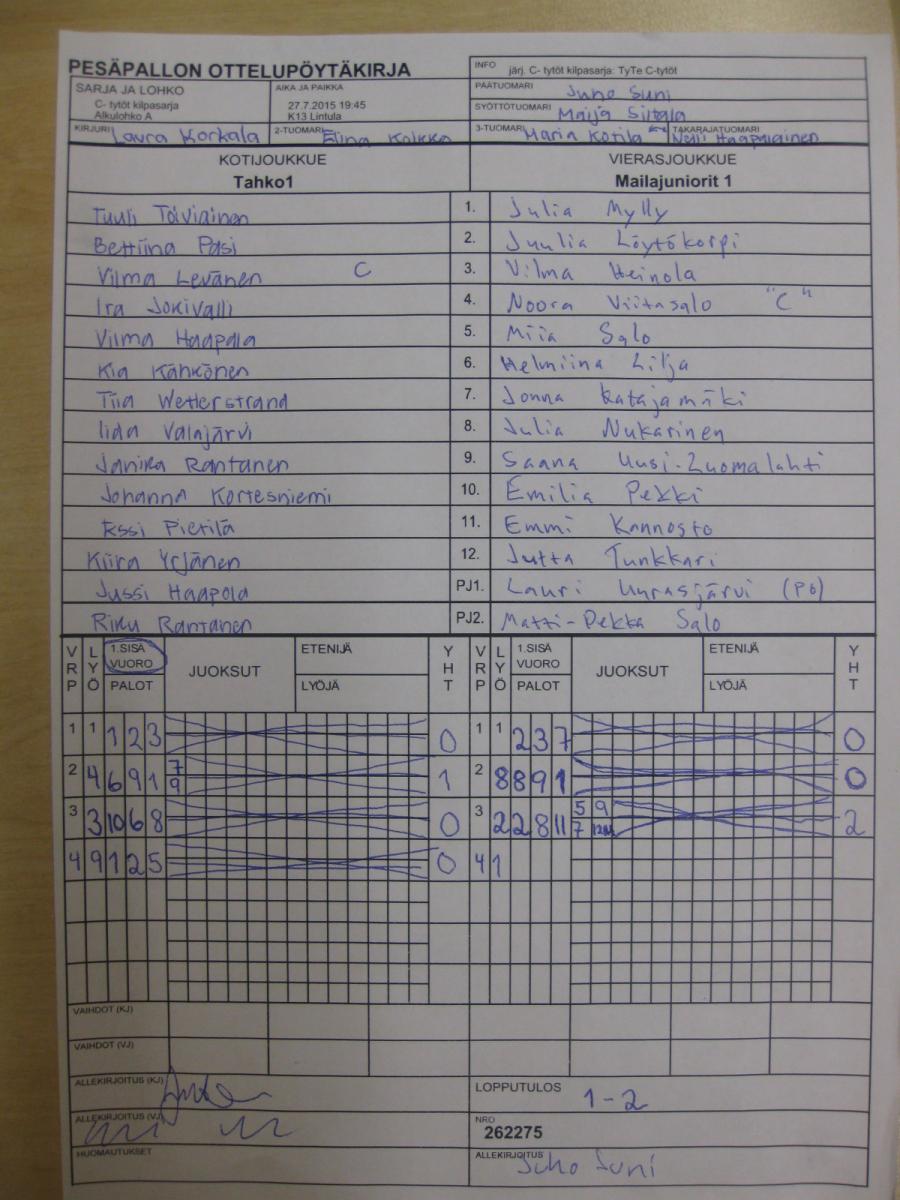 PESÄPALLON OTTELUPÖYTÄKIRJA
INFO järj. C- tytöt kilpasarja: TyTe C-tytöt
SARJA JA LOHKO
C- tytöt kilpasarja
Alkulohko A
AIKA JA PAIKKA
27.7.2015 19:45
K13 Lintula
PÄÄTUOMARI Juho Suni
SYÖTTÖTUOMARI Maija Siltala
KIRJURI Laura Korkala 2-TUOMARI Elina Kolkka 3-TUOMARI Maria Kotila TAKARAJATUOMARI Nelli Haapalainen
KOTIJOUKKUE VIERASJOUKKUE
Tahko1 Mailajuniorit 1
Tuuli Toiviainen 1. Julia Mylly
Bettiina Pasi 2. Juulia Löytökorpi
Vilma Levänen C 3. Vilma Heinola
Ira Jokivalli 4. Noora Viitasalo "C"
Vilma Haapala 5. Miia Salo
Kia Kähkönen 6. Helmiina Lilja
Tiia Wetterstrand 7. Jonna Katajamäki
Iida Valajärvi 8. Julia Nukarinen
Janika Rantanen 9. Saana Uusi-Luomalahti
Johanna Kortesniemi 10. Emilia Pekki
Essi Pietilä 11. Emmi Kannosto
Kiira Yrjänen 12. Jutta Tunkkari
Jussi Haapola PJ1. Lauri Uurasjärvi (PO)
Riku Rantanen PJ2. Matti-Pekka Salo
VRP LYÖ 1.SISÄ VUORO PALOT JUOKSUT ETENIJÄ LYÖJÄ YHT VRP LYÖ 1.SISÄ VUORO PALOT JUOKSUT ETENIJÄ LYÖJÄ YHT
1 1 1 2 3 0 1 1 2 3 7 0
2 4 6 9 1 7 9 1 2 8 8 9 1 0
3 3 10 6 8 0 3 2 2 8 11 5 9 7 2
4 9 1 2 5 0 4 1
VAIHDOT (KJ)
VAIHDOT (VJ)
ALLEKIRJOITUS (KJ) LOPPUTULOS 1-2
ALLEKIRJOITUS (VJ) NRO 262275
HUOMAUTUKSET ALLEKIRJOITUS Juho Suni